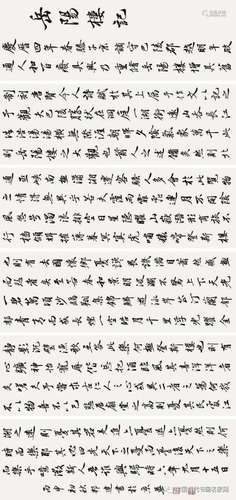 岳陽樓記
慶曆四年春滕子京謫守巴陵郡越明年政
通人和百廢具興乃重修岳陽樓增其舊
制刻唐賢今人詩賦於其上屬予作文以記之
予觀夫巴陵勝狀在洞庭一湖銜遠山吞長江
浩浩湯湯橫無際涯朝暉夕陰氣象萬千此
則岳陽樓之大觀也前人之述備矣然則北
通巫峽南極瀟湘遷客騷人多會於此覽物
之情得無異乎若夫霪雨霏霏連月不開陰
風怒號濁浪排空日星隱曜山岳潛形商旅不
行檣傾楫摧薄暮冥冥虎嘯猿啼登斯樓
也則有去國懷鄉憂讒畏譏滿目蕭然感極
而悲者矣至若春和景明波瀾不驚上下天光
一碧萬頃沙鷗翔集錦鱗游泳岸芷汀蘭郁
郁青青而或長煙一空皓月千里浮光耀金
靜影沉璧漁歌互答此樂何極登斯樓也則有
心曠神怡寵辱偕忘把酒臨風其喜洋洋者
矣嗟夫予嘗求古仁人之心或異二者之為何哉
不以物喜不以己悲居廟堂之高則憂其民處江
湖之遠則憂其君是進亦憂退亦憂然則何
時而樂耶其必曰先天下之憂而憂後天下之樂
而樂乎噫微斯人吾誰與歸時六年九月十五日
丙申初秋